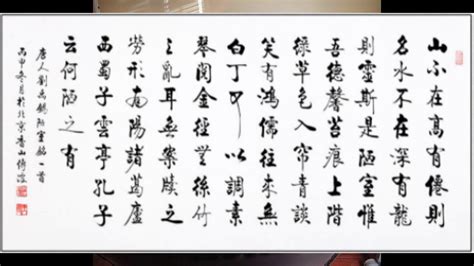 山不在高有僊則
名水不在深有龍
則靈斯是陋室惟
吾德馨苔痕上階
綠草色入簾青談
笑有鴻儒往來無
白丁可以調素
琴閱金經無絲竹
之亂耳無案牘之
勞形南陽諸葛廬
西蜀子雲亭孔子
云何陋之有
唐人劉禹錫陋室銘一首
丙申冬月於北京香山